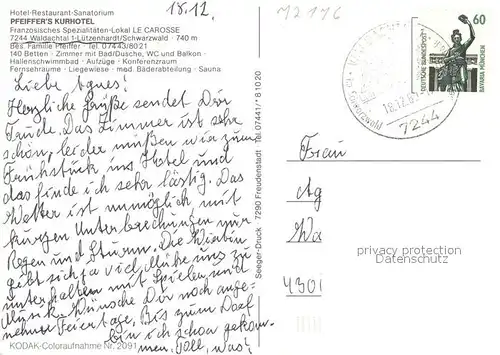 Hotel-Restaurant-Sanatorium
PFEIFFER'S KURHOTEL
Französisches Spezialitäten-Lokal LE CAROSSE
7244 Waldachtal 1-Lützenhardt/Schwarzwald · 740 m
Bes. Familie Pfeiffer · Tel. 07443/8021
140 Betten · Zimmer mit Bad/Dusche, WC und Balkon ·
Hallenschwimmbad · Aufzüge · Konferenzraum
Fernsehräume · Liegewiese · med. Bäderabteilung · Sauna
18.12.
Liebe Agnes!
Herzliche Grüße sendet Dir
Trude. Das Zimmer ist sehr
schön, leider müßen wir zum
Frühstück ins Hotel und
das finde ich sehr lästig. Das
Wetter ist unmöglich mit
kurzen Unterbrechungen nur
Regen und Sturm. Die Wirtin
gibt sich viel Mühe uns zu
unterhalten mit Spielen und
Musik. Wünsche Dir noch ange-
nehme Feiertage. Bis zum Dorf
bin ich schon gekom-
men. Toll, was!
KODAK-Coloraufnahme Nr. 2091
Seeger-Druck 7290 Freudenstadt Tel. 07441/*81020
72176
60
DEUTSCHE BUNDESPOST
BAVARIA MÜNCHEN
Schwarzwald
7244
Frau
Ag
Wa
4300
privacy protection
Datenschutz